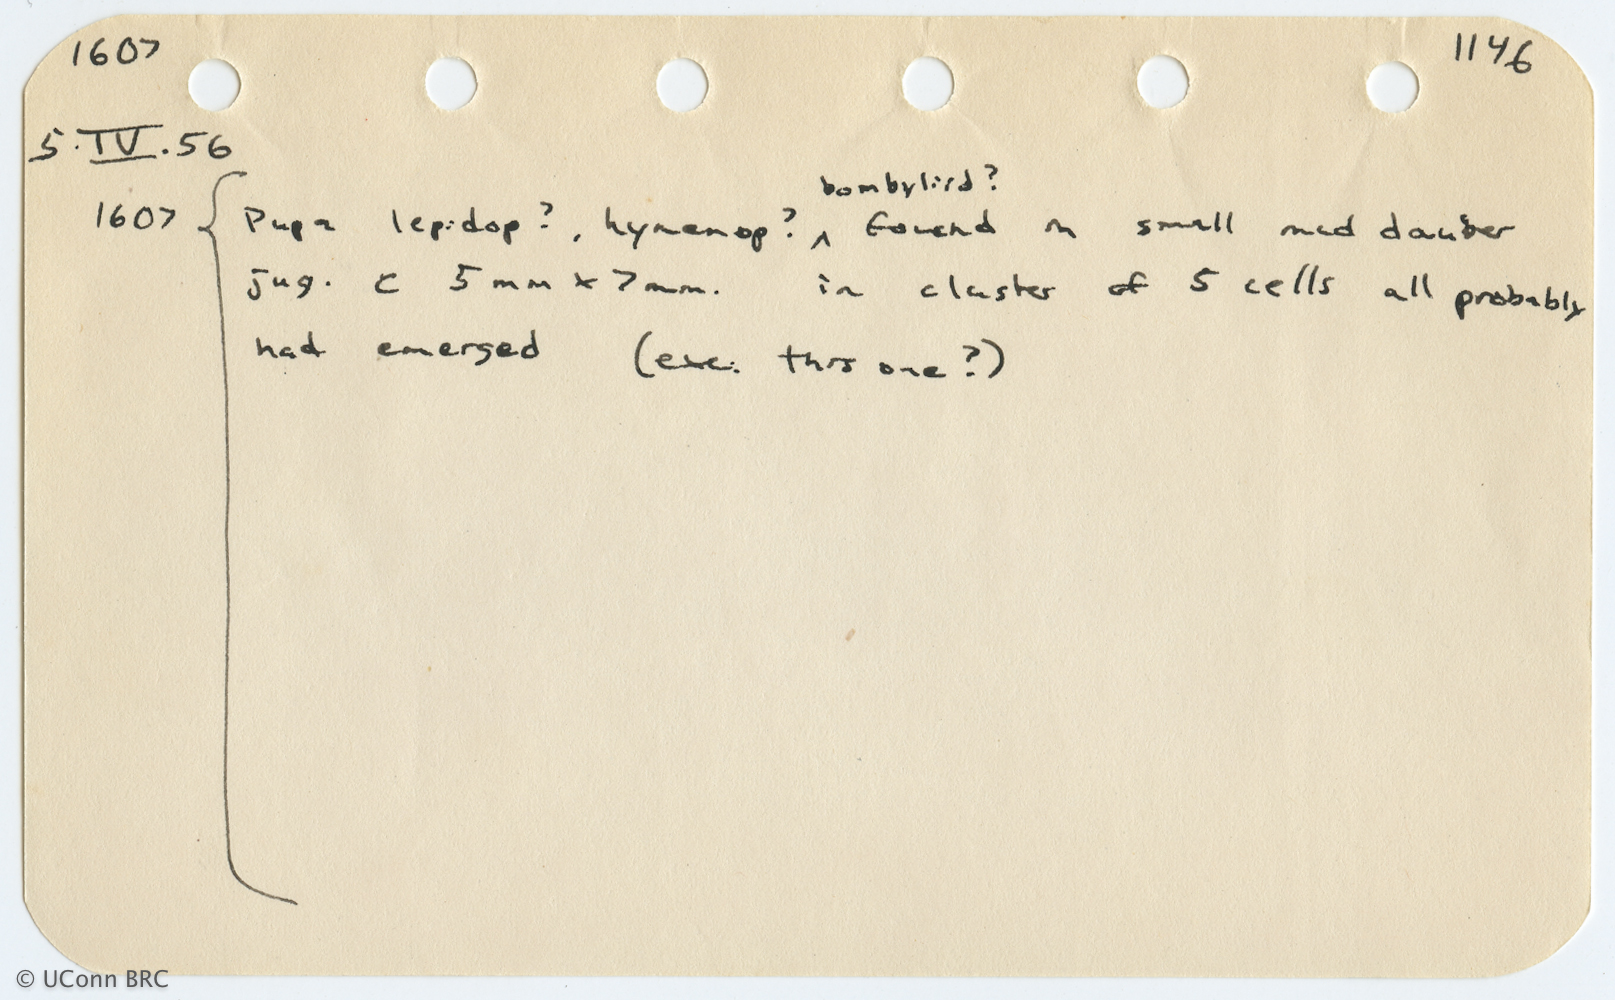 1607 1146
5.IV.56
bombyliid?
1607 { Pupa lepidop?, hymenop? ^ found in small mud dauber
jug. c 5mm x 7mm. in cluster of 5 cells all probably
had emerged (exc. this one?)
© UConn BRC